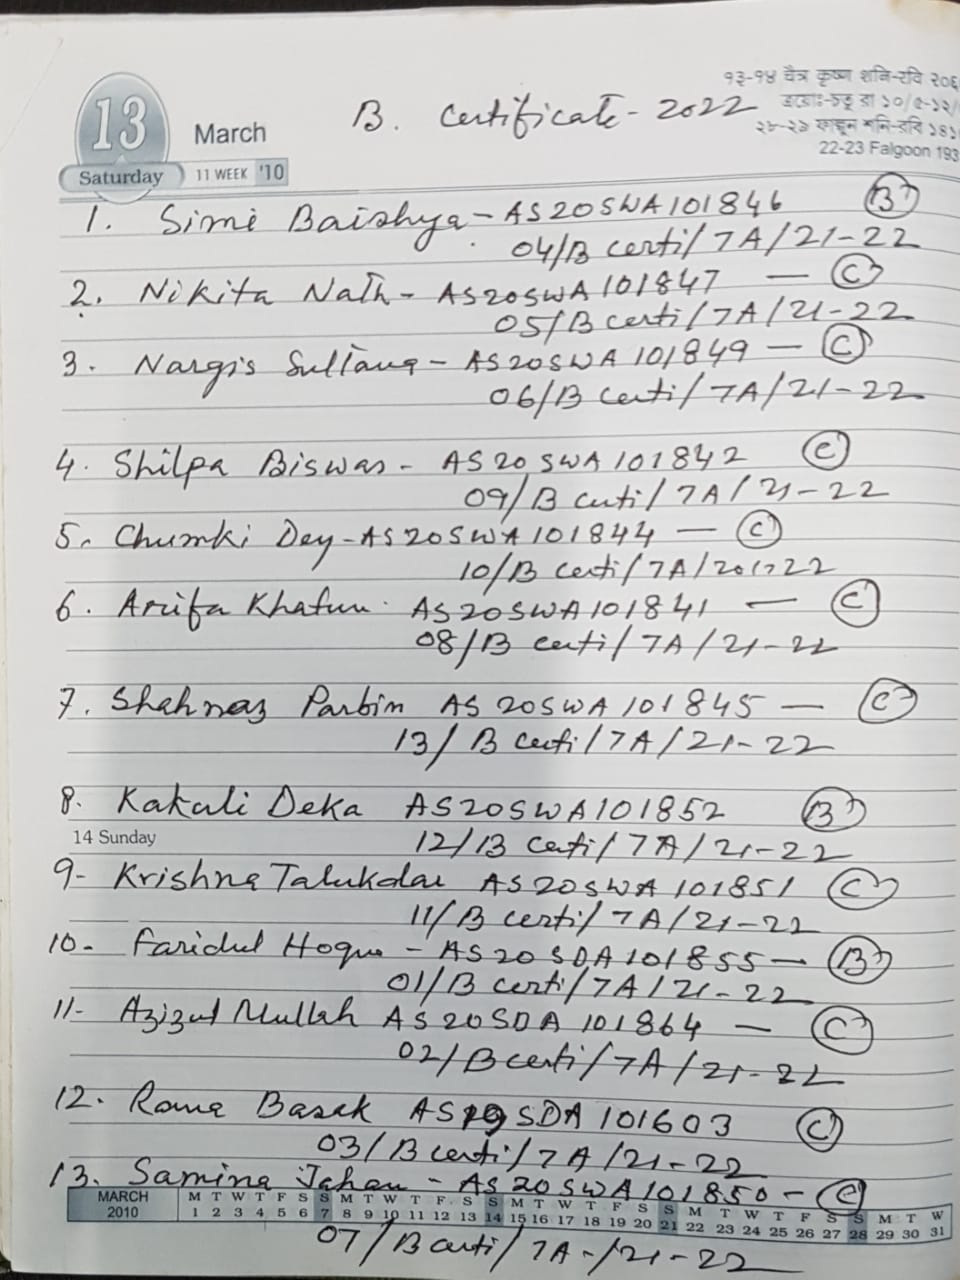 13
March
Saturday
11 WEEK '10
१३-१४ चैत्र कृष्ण शनि-रवि
22-23 Falgoon 193
B. Certificate - 2022
1. Simi Baishya - AS20SWA101846 B
04/B certi/7A/21-22
2. Nikita Nath - AS20SWA101847 — C
05/B certi/7A/21-22
3. Nargis Sultana - AS20SWA101849 — C
06/B certi/7A/21-22
4. Shilpa Biswas - AS20SWA101842 C
09/B certi/7A/21-22
5. Chumki Dey - AS20SWA101844 — C
10/B certi/7A/
6. Arifa Khatun. AS20SWA101841 — C
08/B certi/7A/21-22
7. Shahnaz Parbin AS20SWA101845 — C
13/B certi/7A/21-22
8. Kakali Deka AS20SWA101852 B
14 Sunday
12/B certi/7A/21-22
9- Krishna Talukdar AS20SWA101851 C
11/B certi/7A/21-22
10- Faridul Hoque - AS20SDA101855 — B
01/B certi/7A/21-22
11- Azizul Mullah AS20SDA101864 — C
02/B certi/7A/21-22
12. Rama Basak AS19SDA101603 C
03/B certi/7A/21-22
13. Samina Jahan - AS20SWA101850 - C
MARCH M T W T F S S M T W T F S S M T W T F S S M T W T F S S M T W
2010 1 2 3 4 5 6 7 8 9 10 11 12 13 14 15 16 17 18 19 20 21 22 23 24 25 26 27 28 29 30 31
07/B certi/7A-/21-22